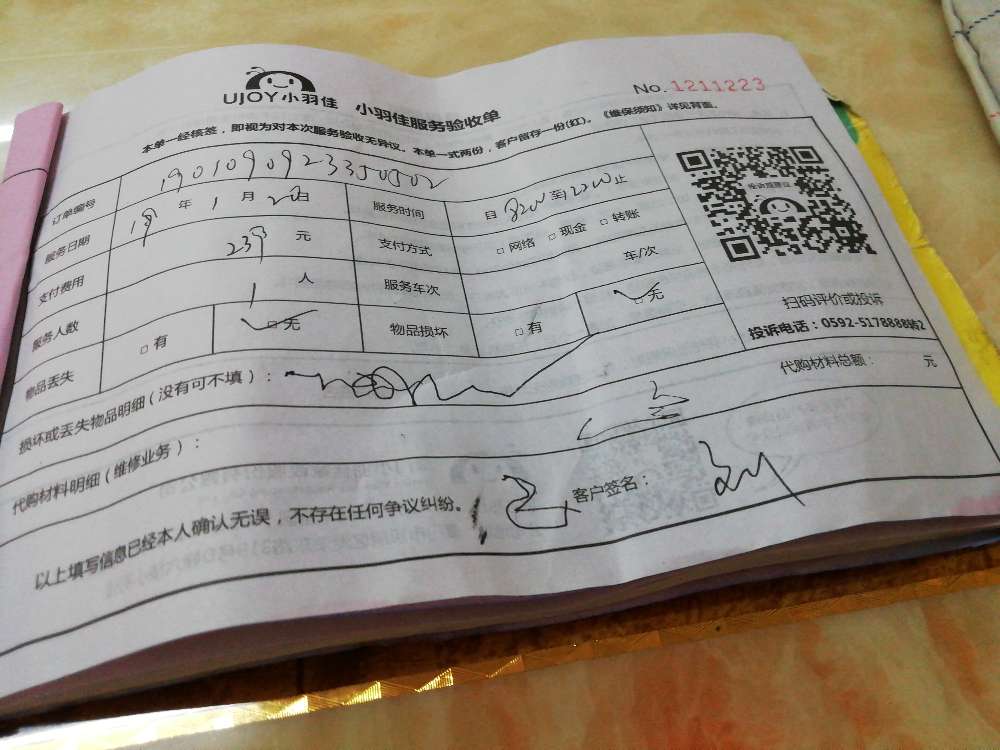 UJOY小羽佳 小羽佳服务验收单
No. 1211223
本单一经核签，即视为对本次服务验收无异议。本单一式两份，客户留存一份(红)。《维保须知》详见背面。
订单编号 190109092335050502
服务日期 19 年 1 月 20 日 服务时间 自 8200 至 1200 止
支付费用 239 元 支付方式 □ 网络 □ 现金 □ 转账
服务人数 1 人 服务车次 车/次
物品丢失 □ 有 □ 无 物品损坏 □ 有 □ 无
投诉或建议
扫码评价或投诉
投诉电话：0592-5178888转2
损坏或丢失物品明细（没有可不填）：
代购材料明细（维修业务）： 代购材料总额： 元
以上填写信息已经本人确认无误，不存在任何争议纠纷。 客户签名：